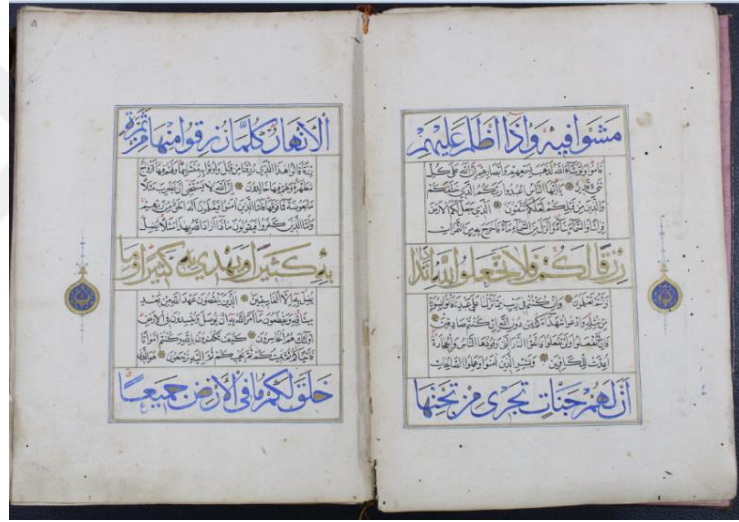 مشوا فيه واذا اظلم عليهم
قاموا ولو شاء الله لذهب بسمعهم وابصارهم ان الله على كل
شيء قدير يا ايها الناس اعبدوا ربكم الذي خلقكم
والذين من قبلكم لعلكم تتقون الذي جعل لكم الارض
فراشا والسماء بناء وانزل من السماء ماء فاخرج به من الثمرات
رزقا لكم فلا تجعلوا لله اندادا
وانتم تعلمون وان كنتم في ريب مما نزلنا على عبدنا فاتوا بسورة
من مثله وادعوا شهداءكم من دون الله ان كنتم صادقين
فان لم تفعلوا ولن تفعلوا فاتقوا النار التي وقودها الناس والحجارة
اعدت للكافرين وبشر الذين آمنوا وعملوا الصالحات
ان لهم جنات تجري من تحتها
الانهار كلما رزقوا منها من ثمرة
رزقا قالوا هذا الذي رزقنا من قبل واتوا به متشابها ولهم فيها ازواج
مطهرة وهم فيها خالدون ان الله لا يستحيي ان يضرب مثلا
ما بعوضة فما فوقها فاما الذين آمنوا فيعلمون انه الحق من ربهم
واما الذين كفروا فيقولون ماذا اراد الله بهذا مثلا يضل
به كثيرا ويهدي به كثيرا وما
يضل به الا الفاسقين الذين ينقضون عهد الله من بعد
ميثاقه ويقطعون ما امر الله به ان يوصل ويفسدون في الارض
اولئك هم الخاسرون كيف تكفرون بالله وكنتم امواتا
فاحياكم ثم يميتكم ثم يحييكم ثم اليه ترجعون هو الذي
خلق لكم ما في الارض جميعا